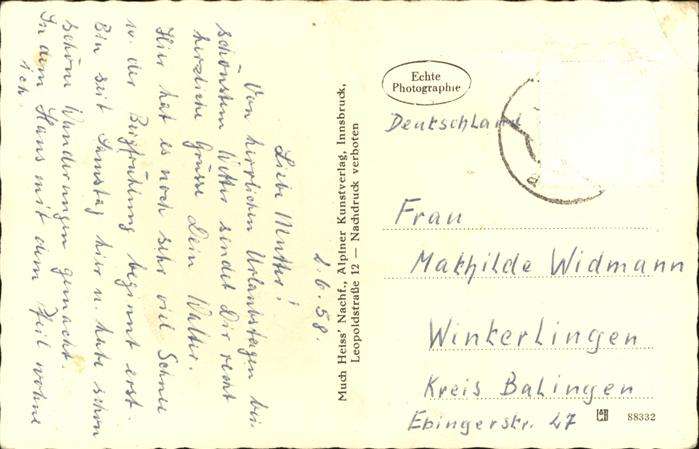 2.6.58.
Liebe Mutter!
Von herrlichen Urlaubstagen bei
schönstem Wetter sendet Dir recht
herzliche Grüsse Dein Walter.
Hier hat es noch sehr viel Schnee
u. der Bergfrühling beginnt erst.
Bin seit Samstag hier u. habe schon
schöne Wanderungen gemacht.
In dem Haus mit dem Pfeil wohne
ich.
Much Heiss' Nachf., Alpiner Kunstverlag, Innsbruck,
Leopoldstraße 12 — Nachdruck verboten
Echte
Photographie
Deutschland
Frau
Mathilde Widmann
Winterlingen
Kreis Balingen
Ebingerstr. 47
88332